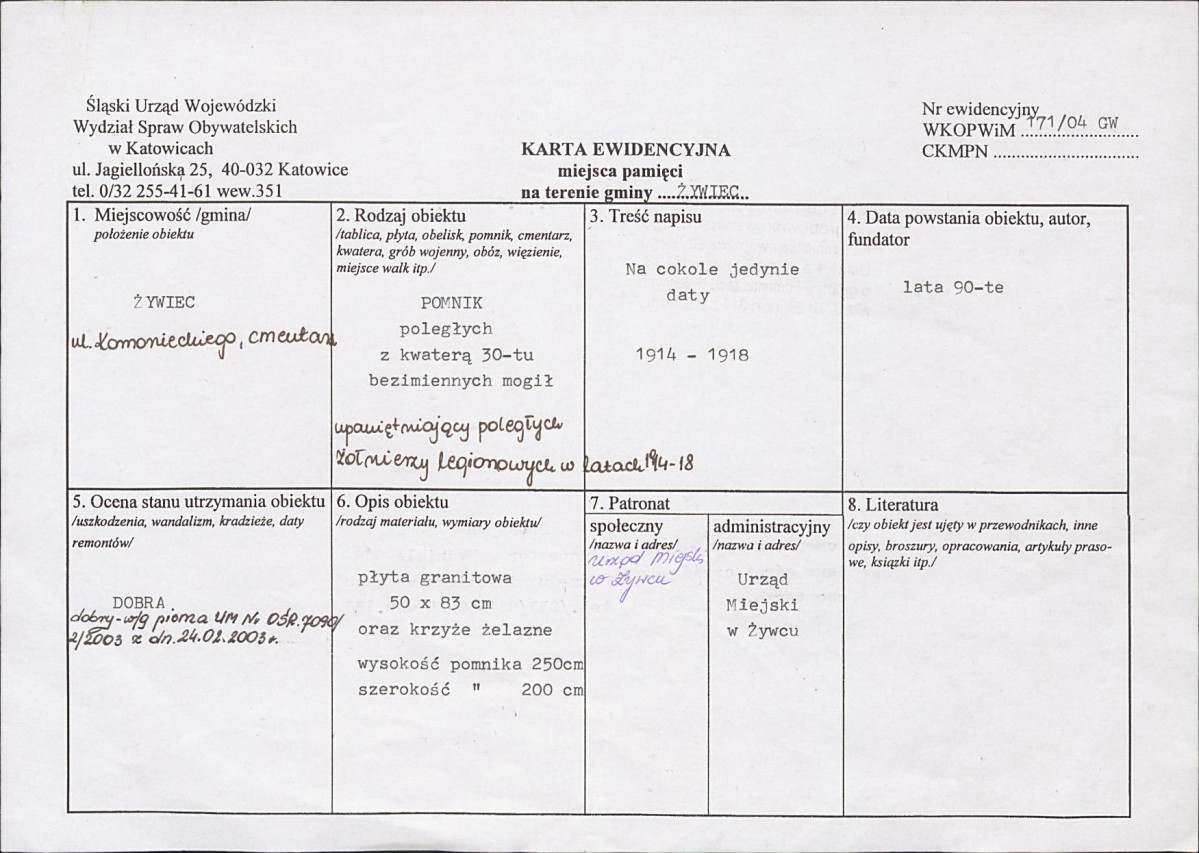 Śląski Urząd Wojewódzki
Wydział Spraw Obywatelskich
w Katowicach
ul. Jagiellońska 25, 40-032 Katowice
tel. 0/32 255-41-61 wew.351
Nr ewidencyjny
WKOPWiM 171/04 GW
CKMPN
KARTA EWIDENCYJNA
miejsca pamięci
na terenie gminy ....ŻYWIEC..
1. Miejscowość /gmina/
położenie obiektu
ŻYWIEC
ul. Komonieckiego, cmentarz
2. Rodzaj obiektu
/tablica, płyta, obelisk, pomnik, cmentarz,
kwatera, grób wojenny, obóz, więzienie,
miejsce walk itp./
POMNIK
poległych
z kwaterą 30-tu
bezimiennych mogił
upamiętniający poległych
żołnierzy legionowych w latach 1914-18
3. Treść napisu
Na cokole jedynie
daty
1914 - 1918
4. Data powstania obiektu, autor,
fundator
lata 90-te
5. Ocena stanu utrzymania obiektu
/uszkodzenia, wandalizm, kradzieże, daty
remontów/
DOBRA
dobry - w/g pisma UM Nr OŚR.7090/
2/2003 z dn. 24.02.2003r.
6. Opis obiektu
/rodzaj materiału, wymiary obiektu/
płyta granitowa
50 x 83 cm
oraz krzyże żelazne
wysokość pomnika 250cm
szerokość " 200 cm
7. Patronat
społeczny
/nazwa i adres/
Urząd Miejski
w Żywcu
administracyjny
/nazwa i adres/
Urząd
Miejski
w Żywcu
8. Literatura
/czy obiekt jest ujęty w przewodnikach, inne
opisy, broszury, opracowania, artykuły praso-
we, książki itp./